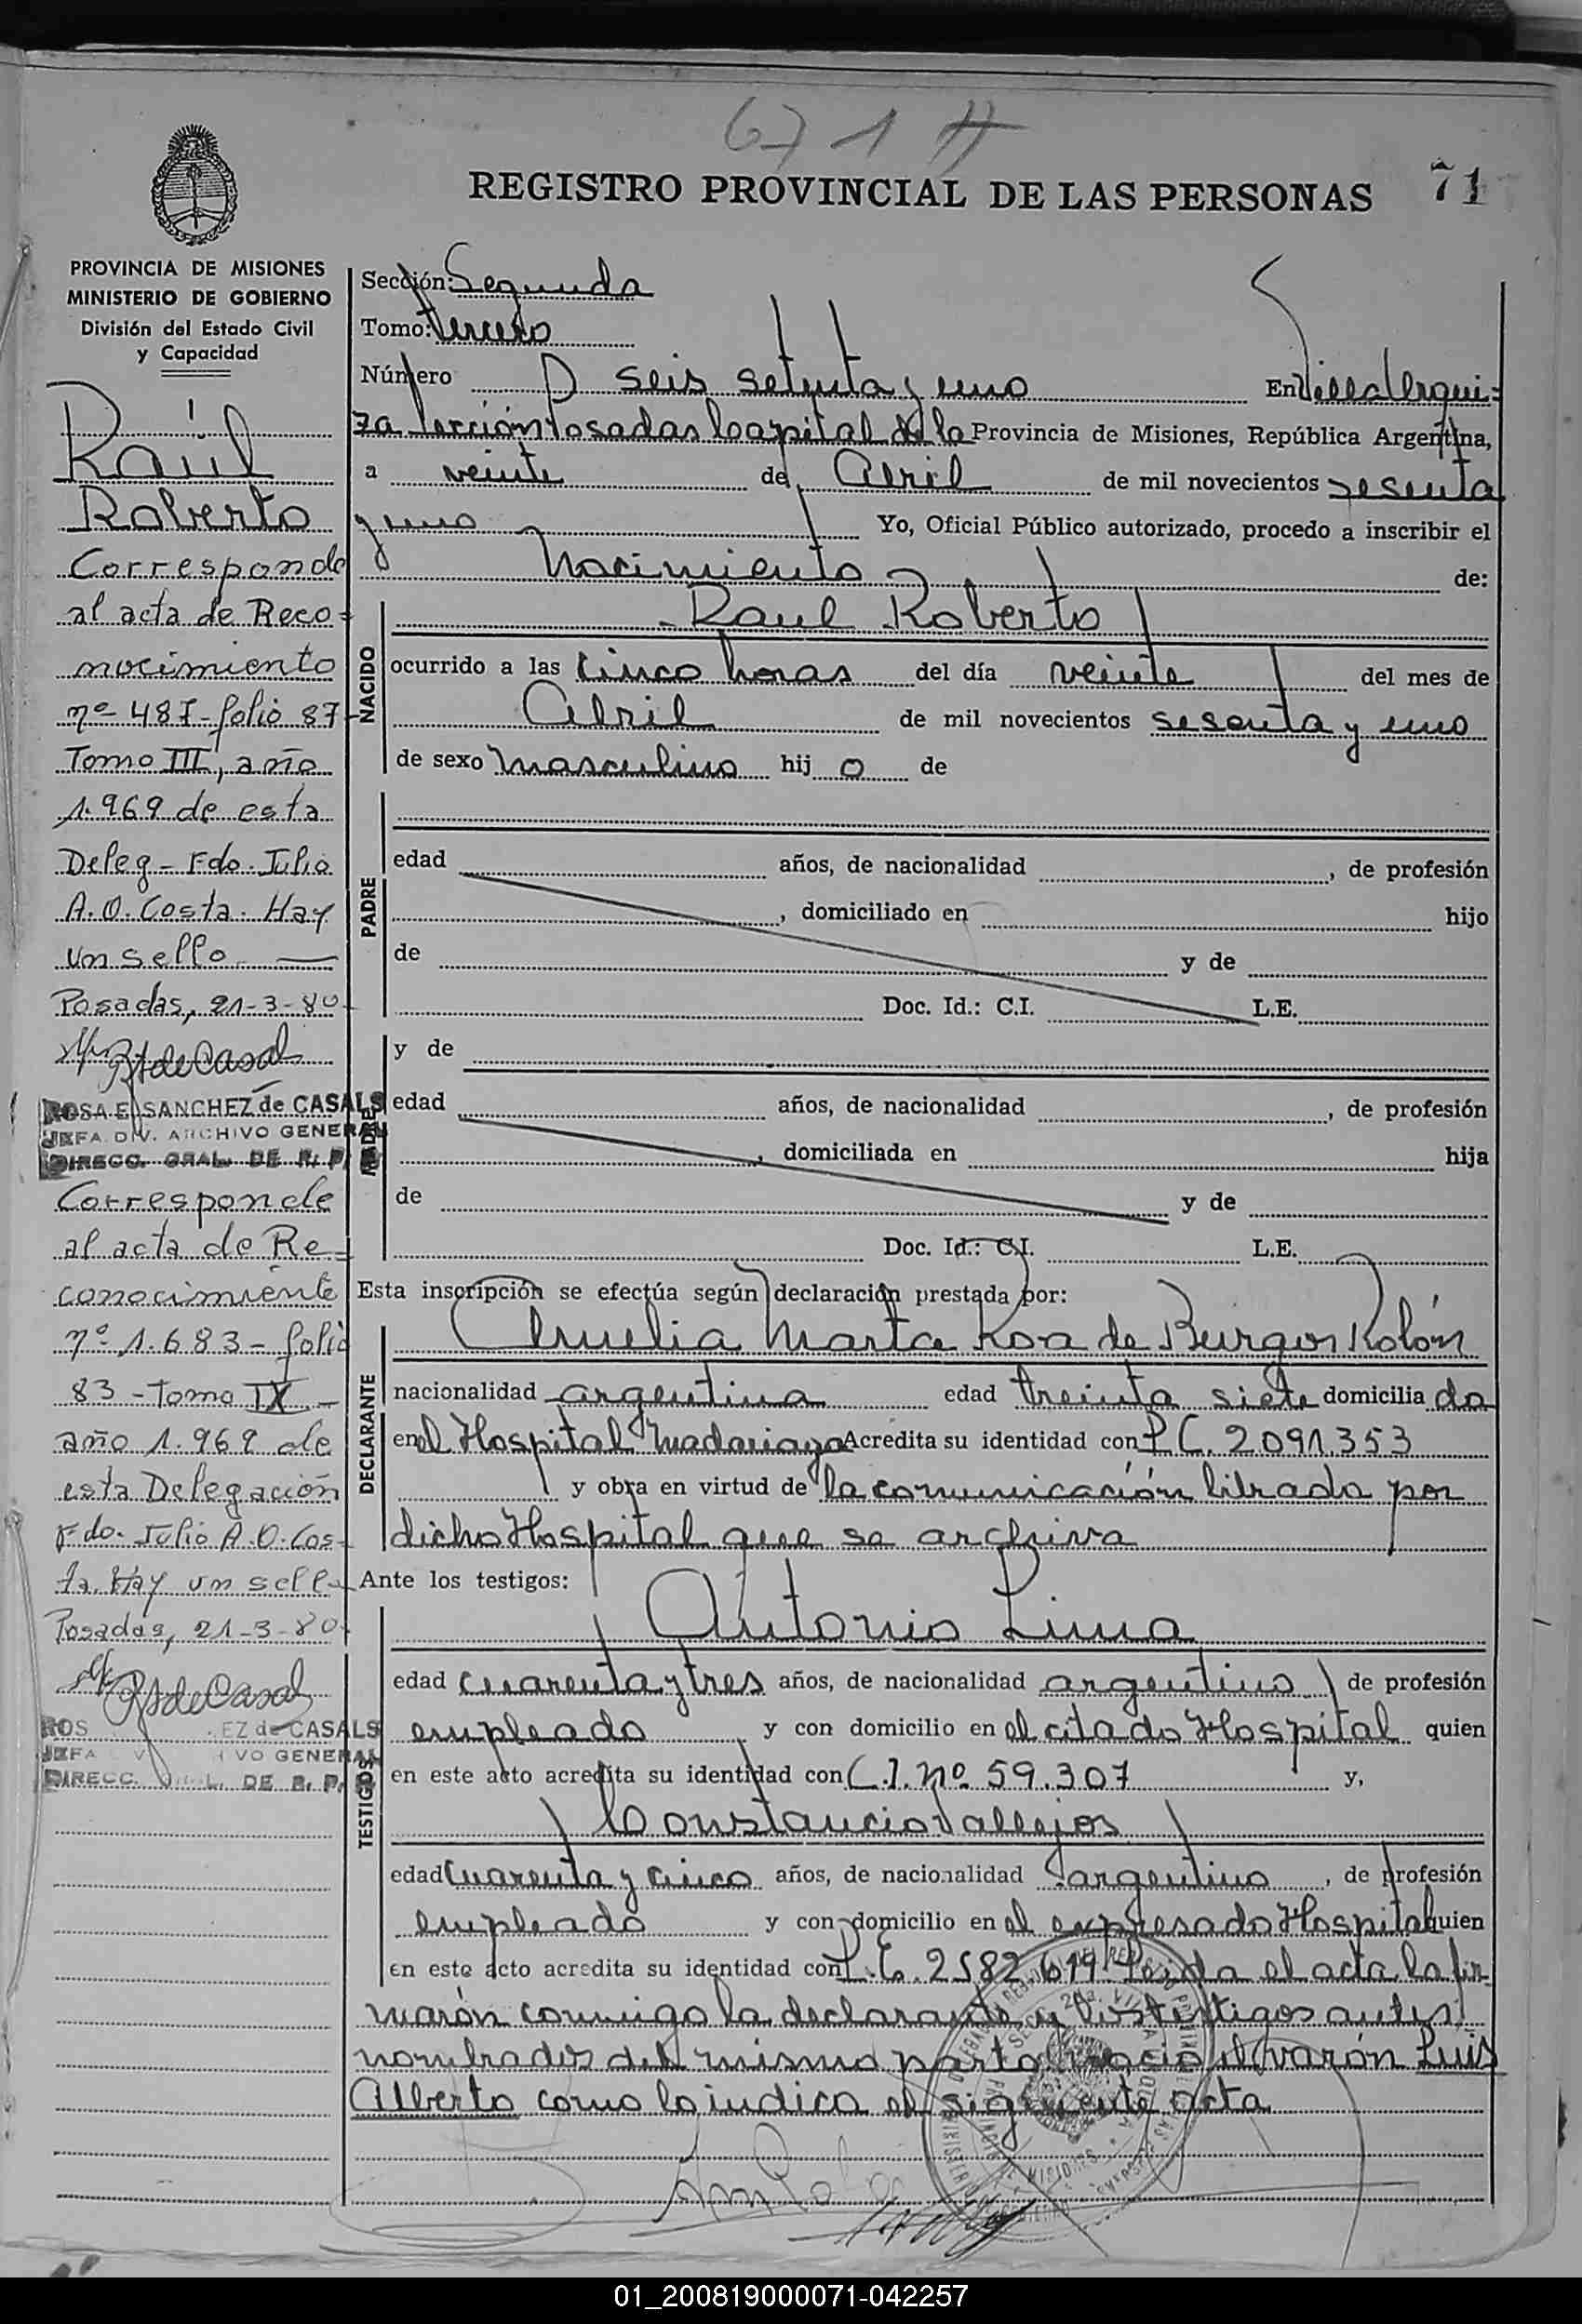 671
REGISTRO PROVINCIAL DE LAS PERSONAS 71
PROVINCIA DE MISIONES
MINISTERIO DE GOBIERNO
División del Estado Civil
y Capacidad
Raúl
Roberto
Corresponde
al acta de Reco=
nocimiento
nº 487-folio 87
Tomo III, año
1.969 de esta
Deleg- Fdo. Julio
A.O. Costa. Hay
un sello.
Posadas, 21-3-80
ROSA E. SANCHEZ de CASALS
JEFA DIV. ARCHIVO GENERAL
DIRECC. GRAL. DE R. P.
Corresponde
al acta de Re=
conocimiento
nº 1.683- folio
83-Tomo IX-
año 1.969 de
esta Delegación
Fdo. Julio A.O. Cos-
ta. Hay un sello
Posadas, 21-3-80
ROS EZ de CASALS
JEFA VO GENERAL
DIRECC. L. DE R. P.
Sección: Segunda
Tomo: tercero
Número seis setenta y uno En Villa Urqui=
za Sección Posadas Capital de la Provincia de Misiones, República Argentina,
a veinte de Abril de mil novecientos sesenta
y uno Yo, Oficial Público autorizado, procedo a inscribir el
Nacimiento de:
NACIDO
Raul Roberto
ocurrido a las cinco horas del día veinte del mes de
Abril de mil novecientos sesenta y uno
de sexo masculino hij o de
PADRE
edad años, de nacionalidad , de profesión
, domiciliado en hijo
de y de
Doc. Id.: C.I. L.E.
MADRE
y de
edad años, de nacionalidad , de profesión
, domiciliada en hija
de y de
Doc. Id.: C.I. L.E.
Esta inscripción se efectúa según declaración prestada por:
DECLARANTE
Amelia Marta Roa de Burgos Rolón
nacionalidad argentina edad treinta siete domicilia da
en el Hospital Madariaga Acredita su identidad con L C. 2091.353
y obra en virtud de la comunicación librada por
dicho Hospital que se archiva
Ante los testigos:
TESTIGOS
Antonio Lima
edad cuarenta y tres años, de nacionalidad argentino de profesión
empleado y con domicilio en el citado Hospital quien
en este acto acredita su identidad con C.I. Nº 59.307 y,
Constancio Vallejos
edad cuarenta y cinco años, de nacionalidad argentino , de profesión
empleado y con domicilio en el expresado Hospital quien
en este acto acredita su identidad con L.E. 2582.619 Leída el acta, la fir-
marón conmigo la declarante y los testigos antes
nombrados del mismo parto nació el varón Luis
Alberto como lo indica el siguiente acta
01_200819000071-042257